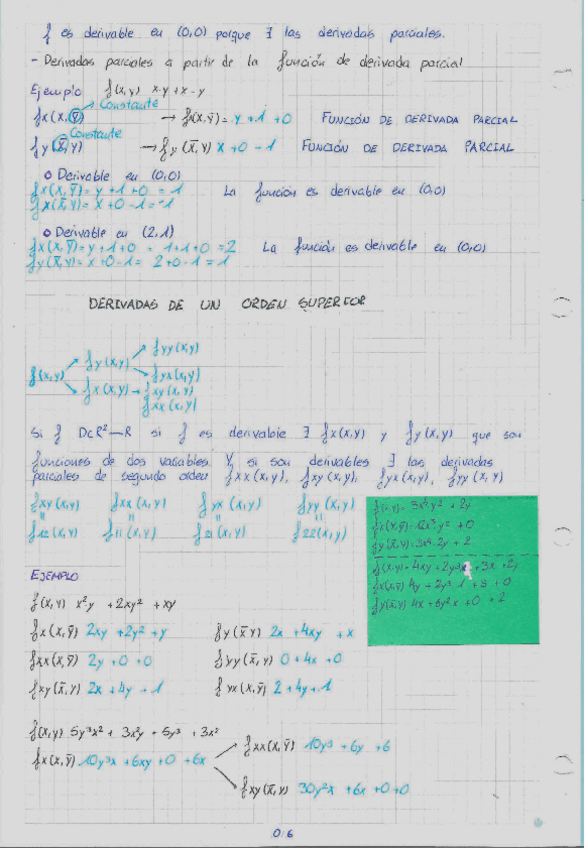 f es derivable en (0,0) porque ∃ las derivadas parciales.
- Derivadas parciales a partir de la función de derivada parcial
Ejemplo f(x,y) x·y+x-y
Constante
fx(x,ȳ) → fx(x,ȳ)= y+1+0 FUNCIÓN DE DERIVADA PARCIAL
Constante
fy(x̄,y) → fy(x̄,y) x+0-1 FUNCIÓN DE DERIVADA PARCIAL
o Derivable en (0,0)
fx(x,ȳ)= y+1+0 = 1 La función es derivable en (0,0)
fx(x̄,y)= x+0-1=-1
o Derivable en (2,1)
fx(x,ȳ)= y+1+0 = 1+1+0=2 La función es derivable en (0,0)
fy(x̄,y)= x+0-1= 2+0-1=1
DERIVADAS DE UN ORDEN SUPERIOR
fyy(x,y)
fy(x,y)
fyx(x,y)
f(x,y)
fx(x,y) → fxy(x,y)
fxx(x,y)
Si f D⊂R²—R si f es derivable ∃ fx(x,y) y fy(x,y) que son
funciones de dos variables. Y si son derivables ∃ las derivadas
parciales de segundo orden fxx(x,y), fxy(x,y), fyx(x,y), fyy(x,y)
fxy(x,y) fxx(x,y) fyx(x,y) fyy(x,y)
= = = =
f12(x,y) f11(x,y) f21(x,y) f22(x,y)
f(x,y)= 3x⁴y² + 2y
fx(x,ȳ)= 12x³y² +0
fy(x̄,y)= 3x⁴·2y + 2
fx(x,ȳ) 4y + 2y³·1 + 3 + 0
fy(x̄,y) 4x + 6y²x +0 + 2
EJEMPLO
f(x,y) x²y + 2xy² + xy
fx(x,ȳ) 2xy +2y² + y fy(x̄,y) 2x + 4xy + x
fxx(x,ȳ) 2y + 0 + 0 fyy(x̄,y) 0+4x +0
fxy(x̄,y) 2x + 4y + 1 fyx(x,ȳ) 2 + 4y + 1
f(x,y) 5y³x² + 3x²y + 5y³ + 3x²
fx(x,ȳ) 10y³x + 6xy +0 +6x
fxx(x,ȳ) 10y³ + 6y + 6
fxy(x̄,y) 30y²x + 6x +0+0
06